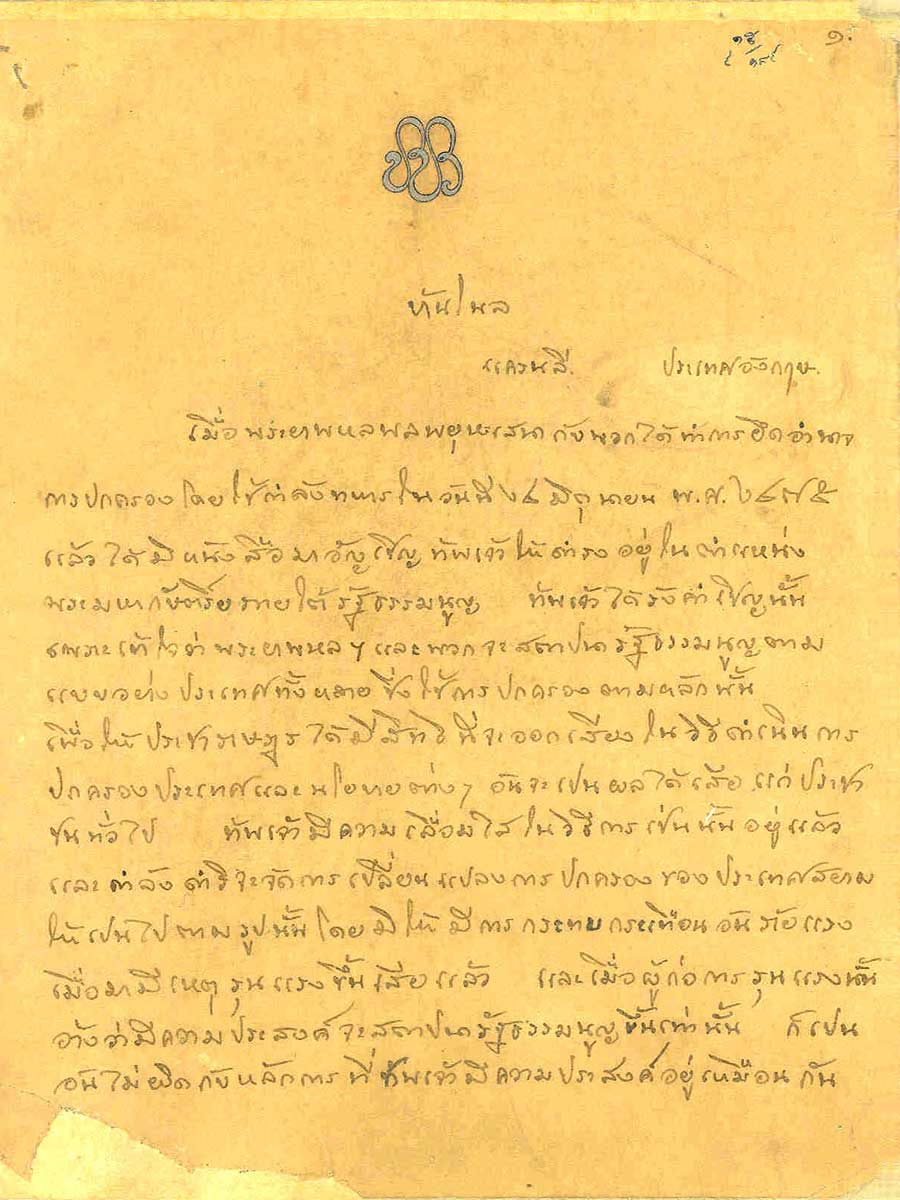 ๑.
ปปร
บ้านโนล
แครนลี. ประเทศอังกฤษ.
เมื่อพระยาพหลพลพยุหเสนากับพวกได้ทำการยึดอำนาจ
การปกครองโดยใช้กำลังทหารในวันที่ ๒๔ มิถุนายน พ.ศ. ๒๔๗๕
แล้วได้มีหนังสือมาอัญเชิญข้าพเจ้าให้ดำรงอยู่ในตำแหน่ง
พระมหากษัตริย์ภายใต้รัฐธรรมนูญ ข้าพเจ้าได้รับคำเชิญนั้น
เพราะเข้าใจว่าพระยาพหล ฯ และพวกจะสถาปนารัฐธรรมนูญตาม
แบบอย่างประเทศทั้งหลายซึ่งใช้การปกครองตามหลักนั้น
เพื่อให้ประชาราษฎรได้มีสิทธิที่จะออกเสียงในวิธีดำเนินการ
ปกครองประเทศและนโยบายต่างๆ อันจะเป็นผลได้เสียแก่ประชา
ชนทั่วไป ข้าพเจ้ามีความเลื่อมใสในวิธีการเช่นนั้นอยู่แล้ว
และกำลังดำริจะจัดการเปลี่ยนแปลงการปกครองของประเทศสยาม
ให้เป็นไปตามรูปนั้นโดยมิให้มีการกระทบกระเทือนอันร้ายแรง
เมื่อมามีเหตุรุนแรงขึ้นเสียแล้ว และเมื่อผู้ก่อการรุนแรงนั้น
อ้างว่ามีความประสงค์จะสถาปนารัฐธรรมนูญขึ้นเท่านั้น ก็เป็น
อันไม่ผิดกับหลักการที่ข้าพเจ้ามีความประสงค์อยู่เหมือนกัน